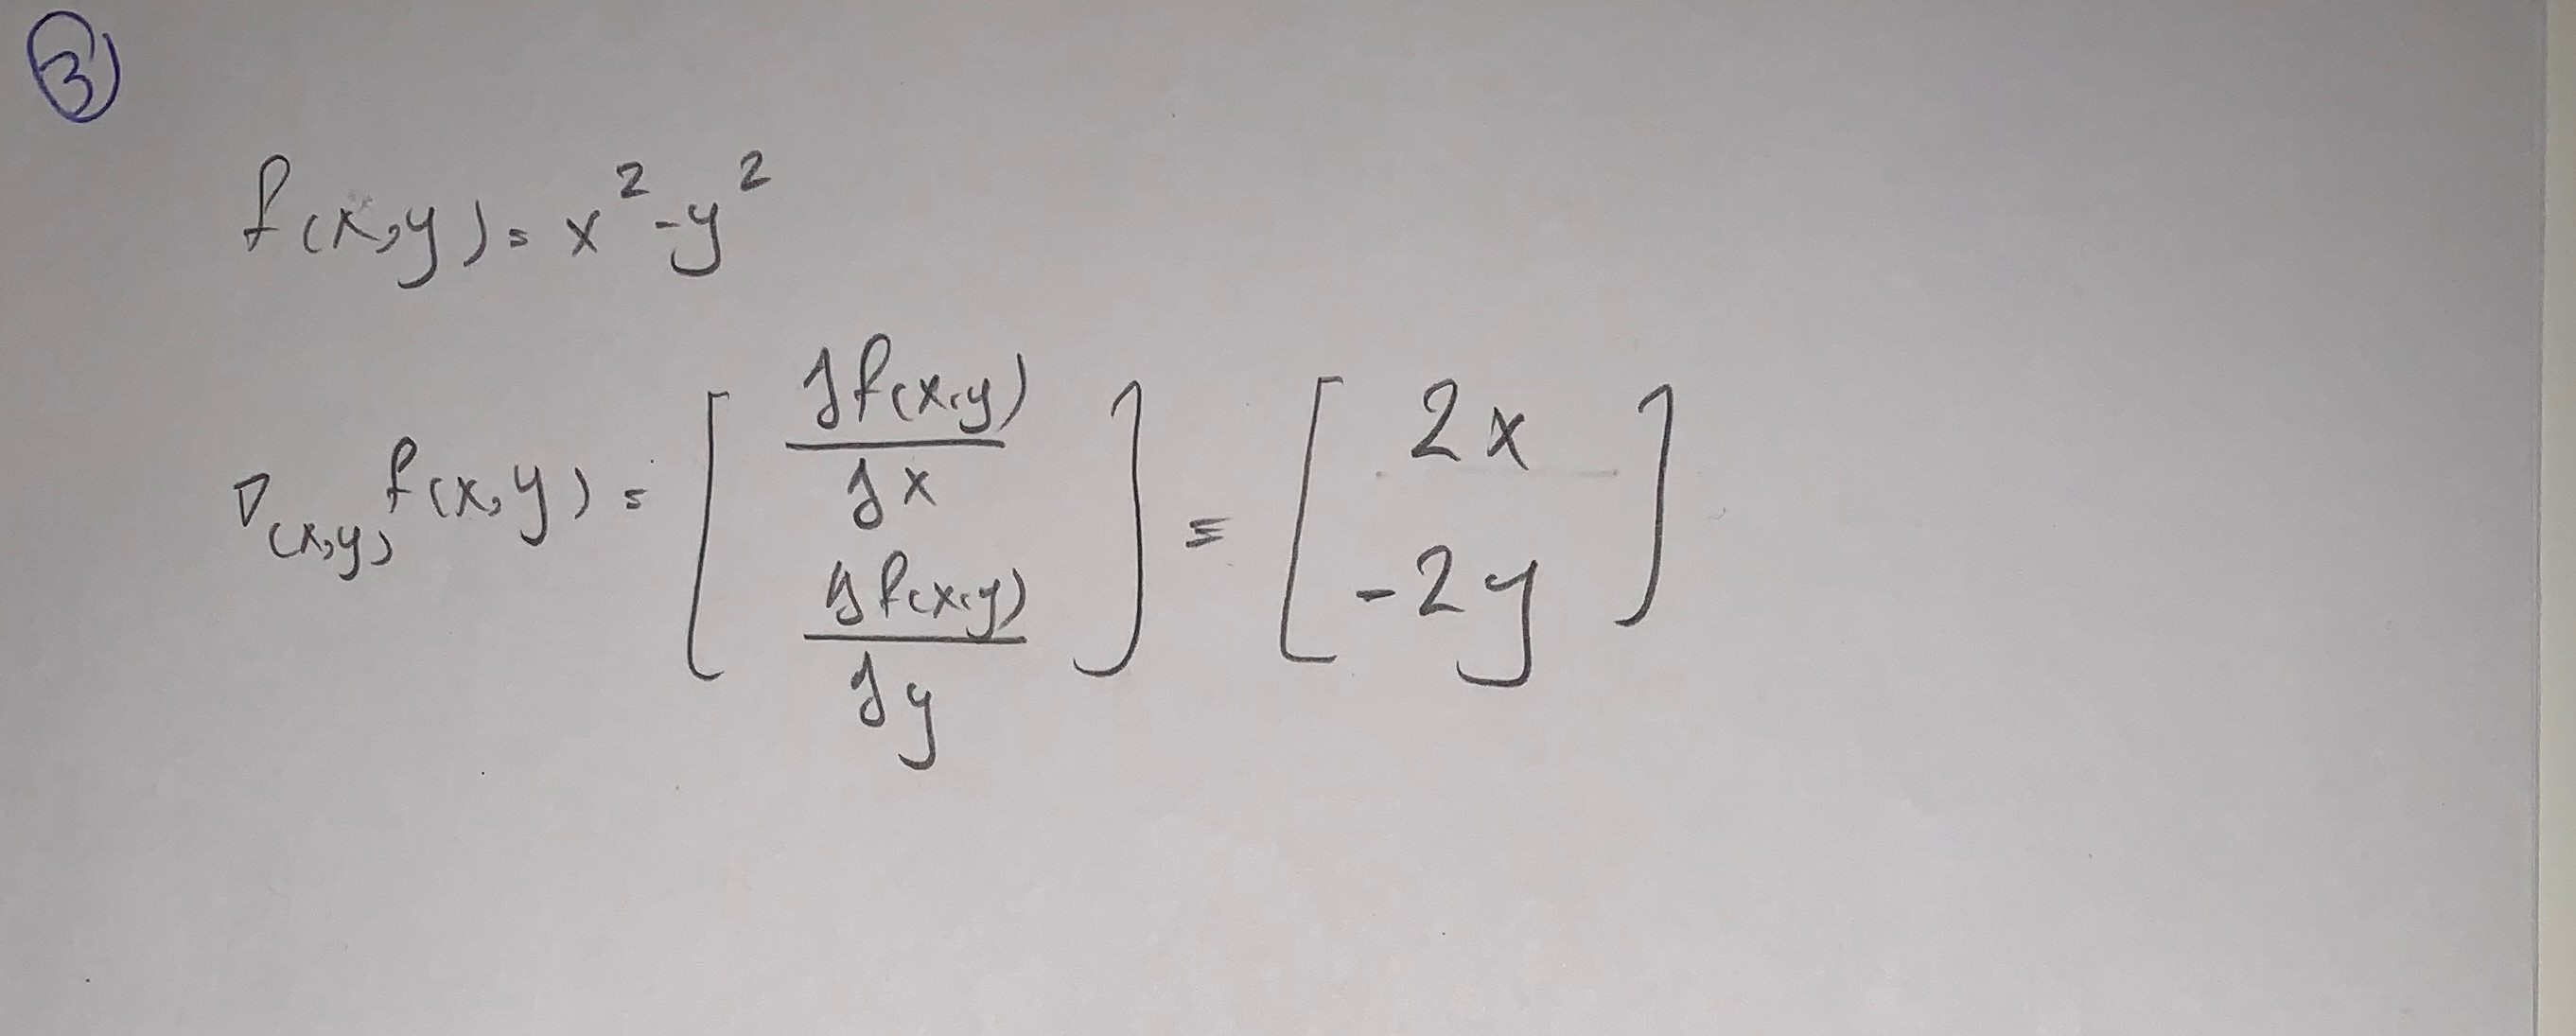 3
f(x,y) = x² - y²
∇₍ₓ,ᵧ₎ f(x,y) = [ ∂f(x,y)/∂x ; ∂f(x,y)/∂y ] = [ 2x ; -2y ]